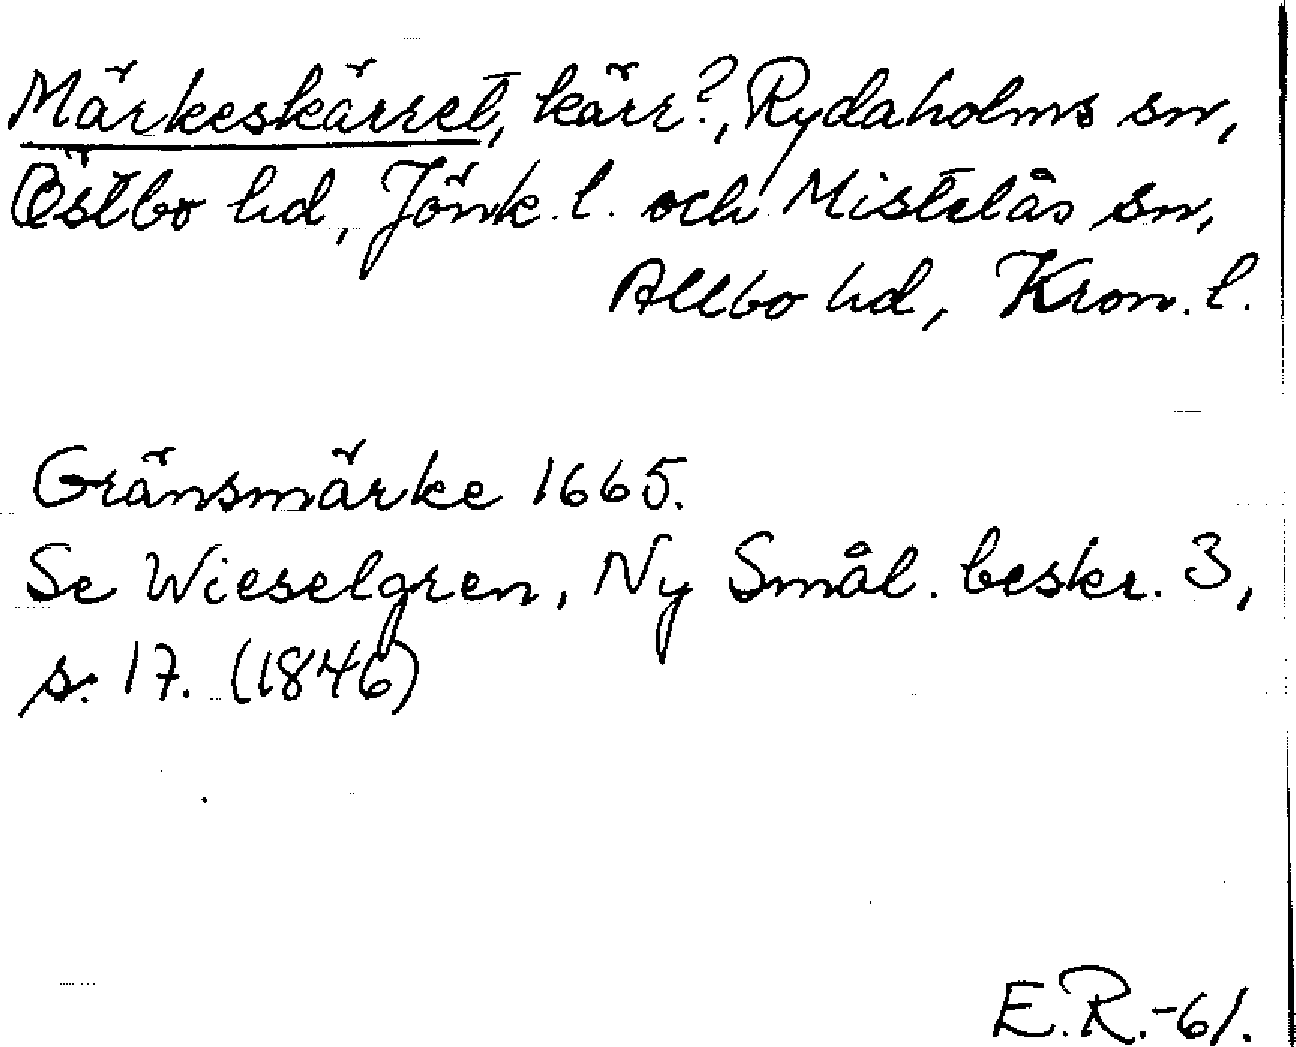 Märkeskärret, kärr?, Rydaholms sn,
Östbo hd, Jönk. l. och Mistelås sn,
Allbo hd, Kron. l.
Gränsmärke 1665.
Se Wieselgren, Ny Smål. beskr. 3,
s. 17. (1846)
E.R.-61.